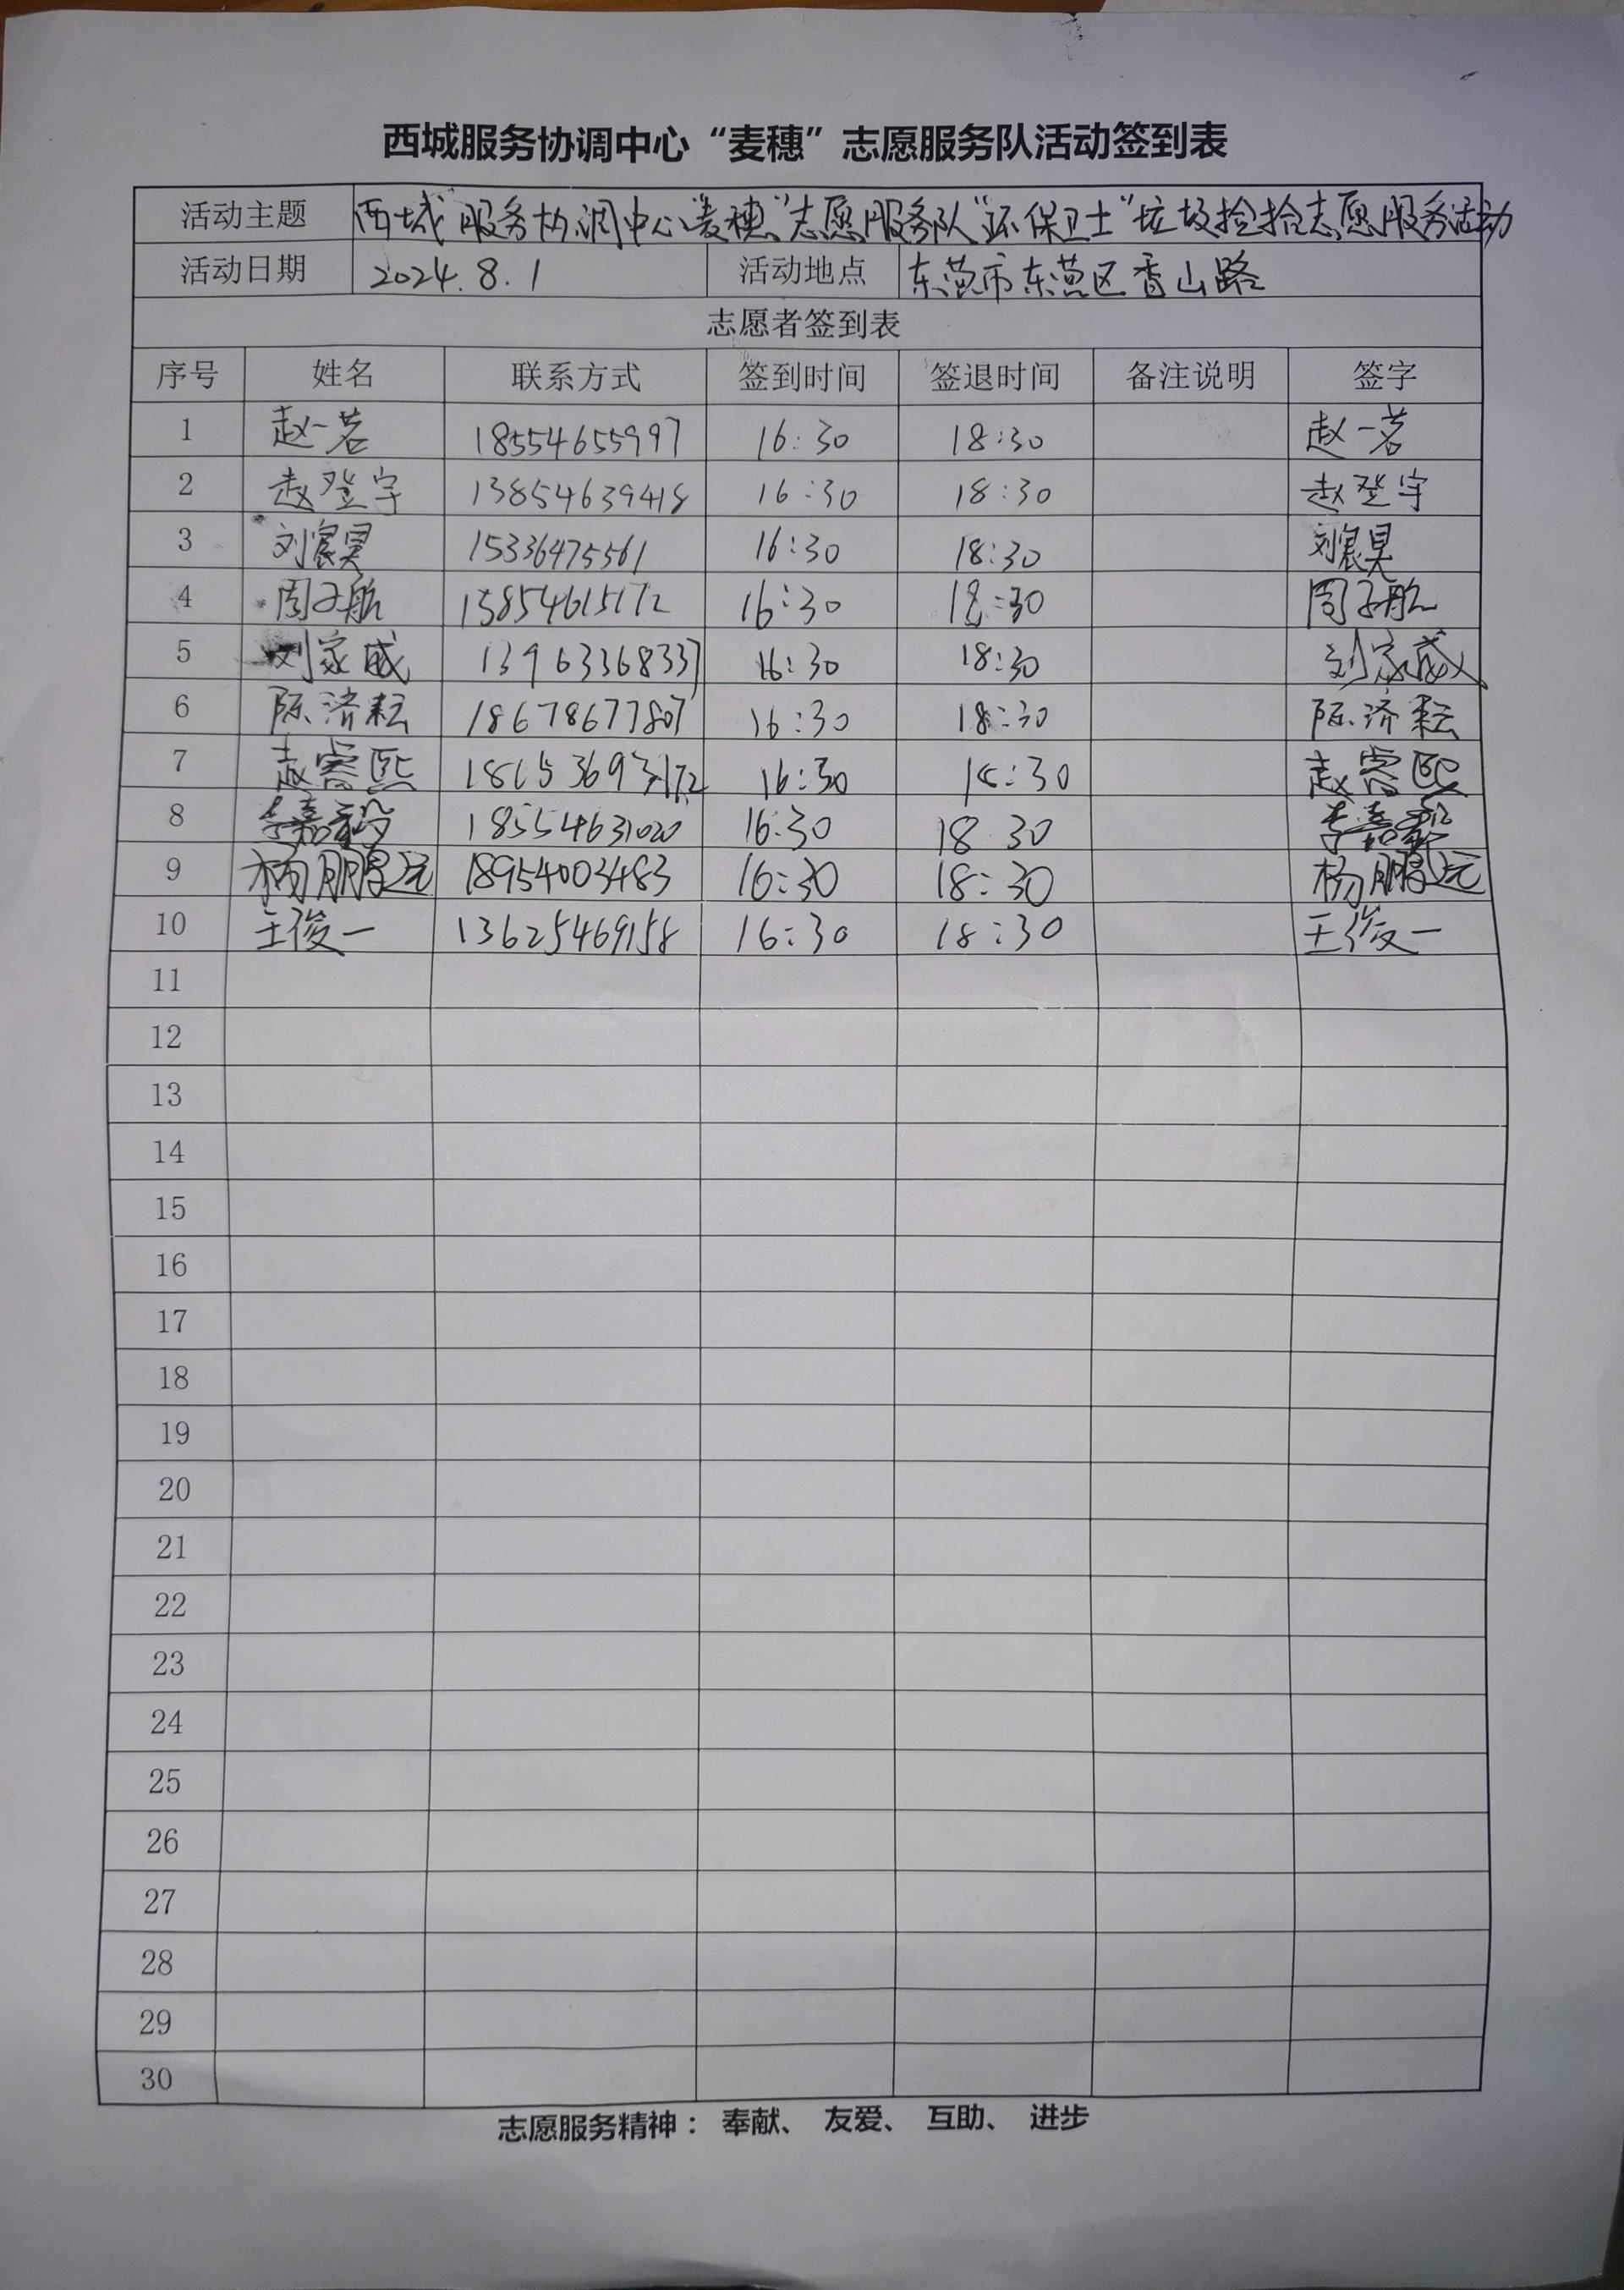 西城服务协调中心“麦穗”志愿服务队活动签到表
活动主题 西城服务协调中心“麦穗”志愿服务队“环保卫士”垃圾捡拾志愿服务活动
活动日期 2024.8.1 活动地点 东营市东营区香山路
志愿者签到表
序号 姓名 联系方式 签到时间 签退时间 备注说明 签字
1 赵一茗 18554655997 16:30 18:30 赵一茗
2 赵登宇 13854639418 16:30 18:30 赵登宇
3 刘宸昊 15336475561 16:30 18:30 刘宸昊
4 周子航 15854615172 16:30 18:30 周子航
5 刘家威 13963368337 16:30 18:30 刘家威
6 陈济耘 18678677807 16:30 18:30 陈济耘
7 赵睿熙 16:30 18:30 赵睿熙
8 李嘉毅 18554631020 16:30 18 30 李嘉毅
9 杨鹏远 18954003483 16:30 18:30 杨鹏远
10 王俊一 13625469158 16:30 18:30 王俊一
11
12
13
14
15
16
17
18
19
20
21
22
23
24
25
26
27
28
29
30
志愿服务精神： 奉献、 友爱、 互助、 进步